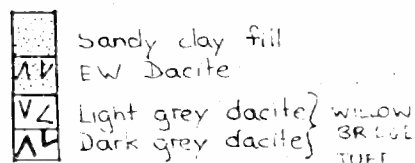 Sandy clay fill
EW Dacite
Light grey dacite} WILLOW
Dark grey dacite} BRIDGE
TUFF